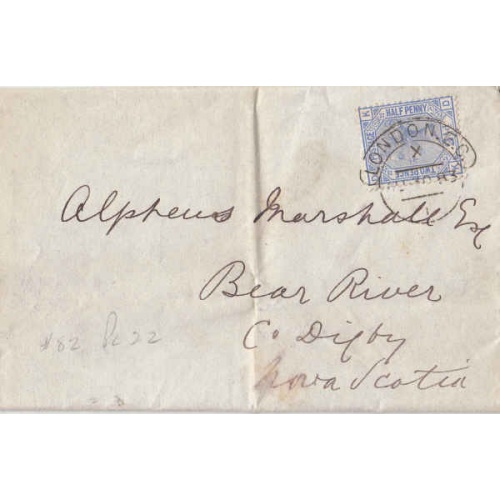 HALF PENNY
K D
LONDON. E.C
X
Alpheus Marshall Esq
Bear River
Co. Digby
Nova Scotia